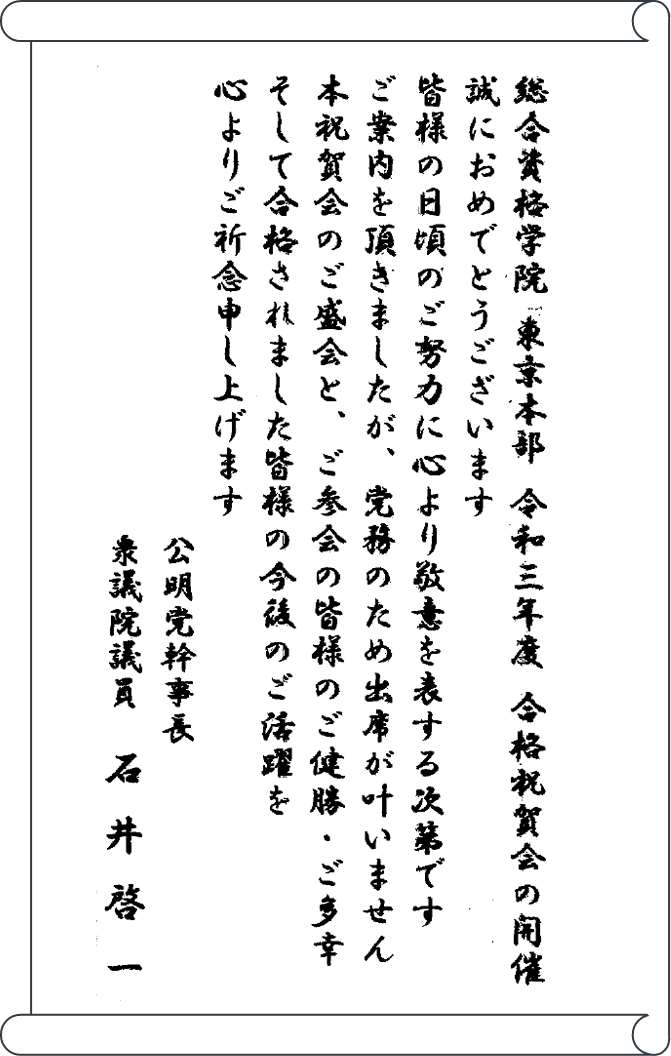 総合資格学院 東京本部 令和三年度 合格祝賀会の開催
誠におめでとうございます
皆様の日頃のご努力に心より敬意を表する次第です
ご案内を頂きましたが、党務のため出席が叶いません
本祝賀会のご盛会と、ご参会の皆様のご健勝・ご多幸
そして合格されました皆様の今後のご活躍を
心よりご祈念申し上げます
公明党幹事長
衆議院議員 石井啓一